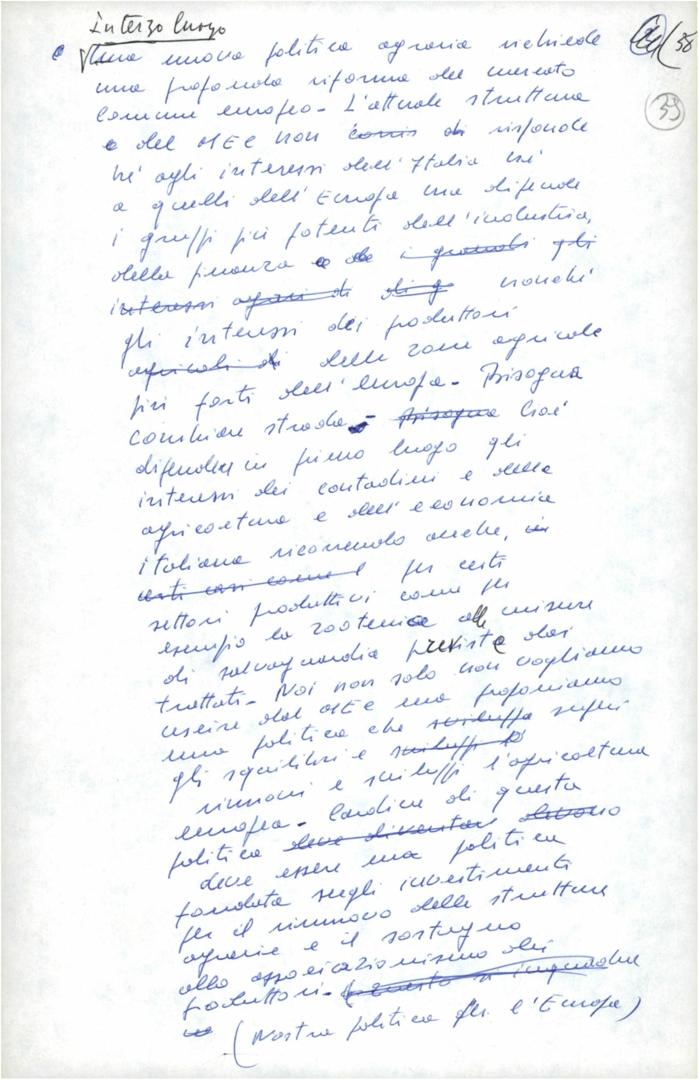 In terzo luogo
Una nuova politica agraria richiede
38
una profonda riforma del mercato
comune europeo - L'attuale struttura
39
e del MEC non di risponde
né agli interessi dell'Italia né
a quelli dell'Europa ma difende
i gruppi più potenti dell'industria,
della finanza e de i grandi gli
interessi agrari di nonché
gli interessi dei produttori
agricoli di delle zone agricole
più forti dell'Europa - Bisogna
cambiare strada - Bisogna Cioè
difendere in primo luogo gli
interessi dei contadini e della
agricoltura e dell'economia
italiana ricorrendo anche, in
certi casi come per certi
settori produttivi come per
esempio la zootecnia alle misure
di salvaguardia previste dai
trattati - Noi non solo non vogliamo
uscire dal MEC ma proponiamo
una politica che sviluppa superi
gli squilibri e sviluppi
rinnovi e sviluppi l'agricoltura
europea - Cardine di questa
politica deve diventare devono
deve essere una politica
fondata sugli investimenti
per il rinnovo delle strutture
agrarie e il sostegno
allo associazionismo dei
produttori - (questo si inquadra
(Nostra politica per l'Europa)